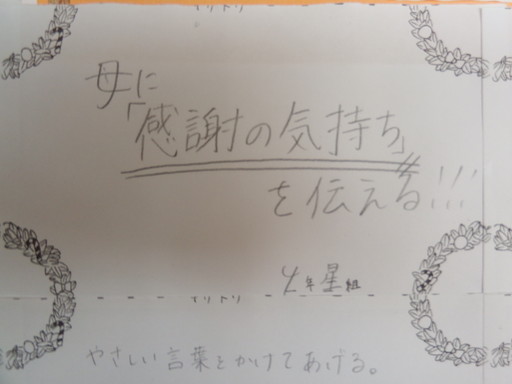 キリトリ
母に
「感謝の気持ち」
を伝える!!!
4年星組
キリトリ
やさしい言葉をかけてあげる。